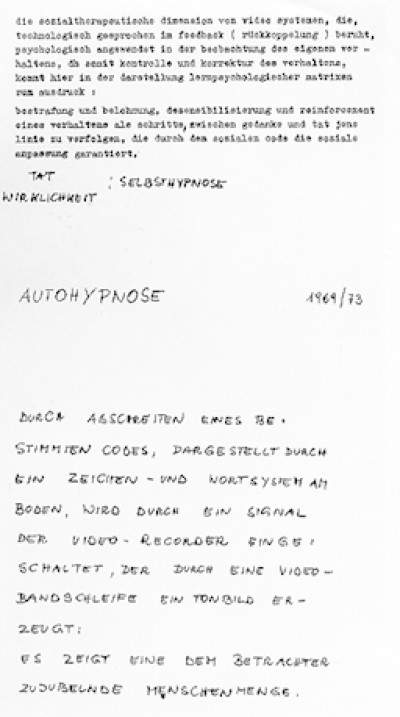 die sozialtherapeutische dimension von video systemen, die,
technologisch gesprochen im feedback ( rückkoppelung ) beruht,
psychologisch angewendet in der beobachtung des eigenen ver -
haltens, dh somit kontrolle und korrektur des verhaltens,
kommt hier in der darstellung lernpsychologischer matrizen
zum ausdruck :
bestrafung und belohnung, desensibilisierung und reinforcement
eines verhaltens als schritte, zwischen gedanke und tat jene
linie zu verfolgen, die durch den sozialen code die soziale
anpassung garantiert.
TAT
: SELBSTHYPNOSE
WIRKLICHKEIT
AUTOHYPNOSE 1969/73
DURCH ABSCHREITEN EINES BE -
STIMMTEN CODES, DARGESTELLT DURCH
EIN ZEICHEN - UND WORTSYSTEM AM
BODEN, WIRD DURCH EIN SIGNAL
DER VIDEO - RECORDER EINGE -
SCHALTET, DER DURCH EINE VIDEO -
BANDSCHLEIFE EIN TONBILD ER -
ZEUGT:
ES ZEIGT EINE DEM BETRACHTER
ZUJUBELNDE MENSCHENMENGE.